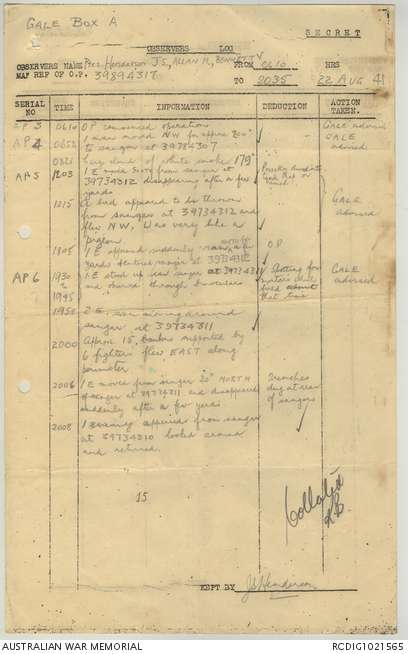 GALE BOX A
SECRET
OBSERVERS LOG
OBSERVERS NAME Ptes Henderson J.S, Allan H, Bennett V FROM 0610 HRS
MAP REF OF O.P. 39894317 TO 2035 22 AUG 41
SERIAL NO TIME INFORMATION DEDUCTION ACTION TAKEN.
AP 3 0610 OP commenced operation GALE advised
AP 4 0652 1 man moved NW for approx 200x GALE
to sangar at 39784307 advised
0821 Large cloud of white smoke 179°
AP 5 1203 1 E move from sangar at
39734312 disappearing after a few
yards
1215 A bird appeared to be thrown GALE
from sangars at 39734312 and advised
flew NW. Was very like a
pigeon.
1805 1 E appeared suddenly a few O.P
yards sangar at
AP 6 1930 1 E stood up near sangar at 39734311 GALE
and observed through binoculars advised
1945 that time
1950 2 E. seen moving around
sangar at 39734311
2000 Approx 15 bombers supported by
6 fighters flew EAST along
perimeter
2006 1 E moves from sangar 20x NORTH Trenches
of sangar at 39734311 and disappeared dug at rear
suddenly after a few yards of sangars
2008 1 enemy appeared from sangar
at 39734310 looked around
and returned.
15
Collated
KEPT BY J.S Henderson
AUSTRALIAN WAR MEMORIAL
RCDIG1021565